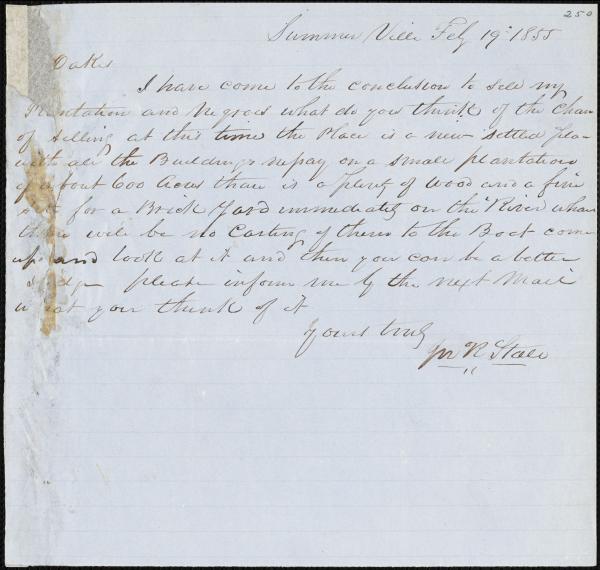 250
Summer Ville Feby 19th 1855
Oakes
I have come to the conclusion to sell my
Plantation and Negroes what do you think of the chan
of selling at this time the Place is a new settled plan
with all the Buildings nessary on a small plantation
of about 600 Acres thare is a plenty of wood and a fine
for a Brick Yard immediately on the River whare
thare will be no Carting of them to the Boat come
up and look at it and then you can be a better
please inform me by the next Mail
what you think of it
Yours truly
Jno R Stall